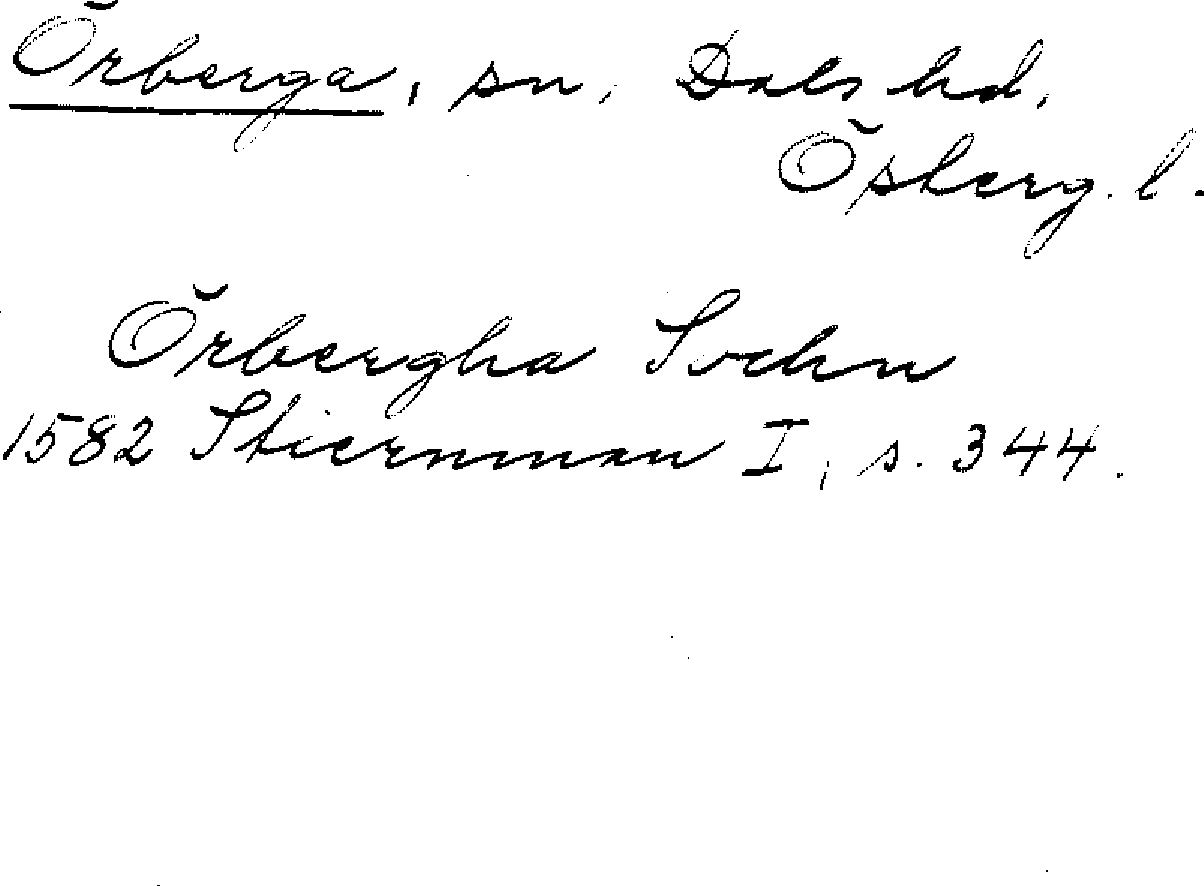 Örberga, sn, Dals hd,
Ösberg. l.
Örbergha Sochn
1582 Stiernman I, s. 344.